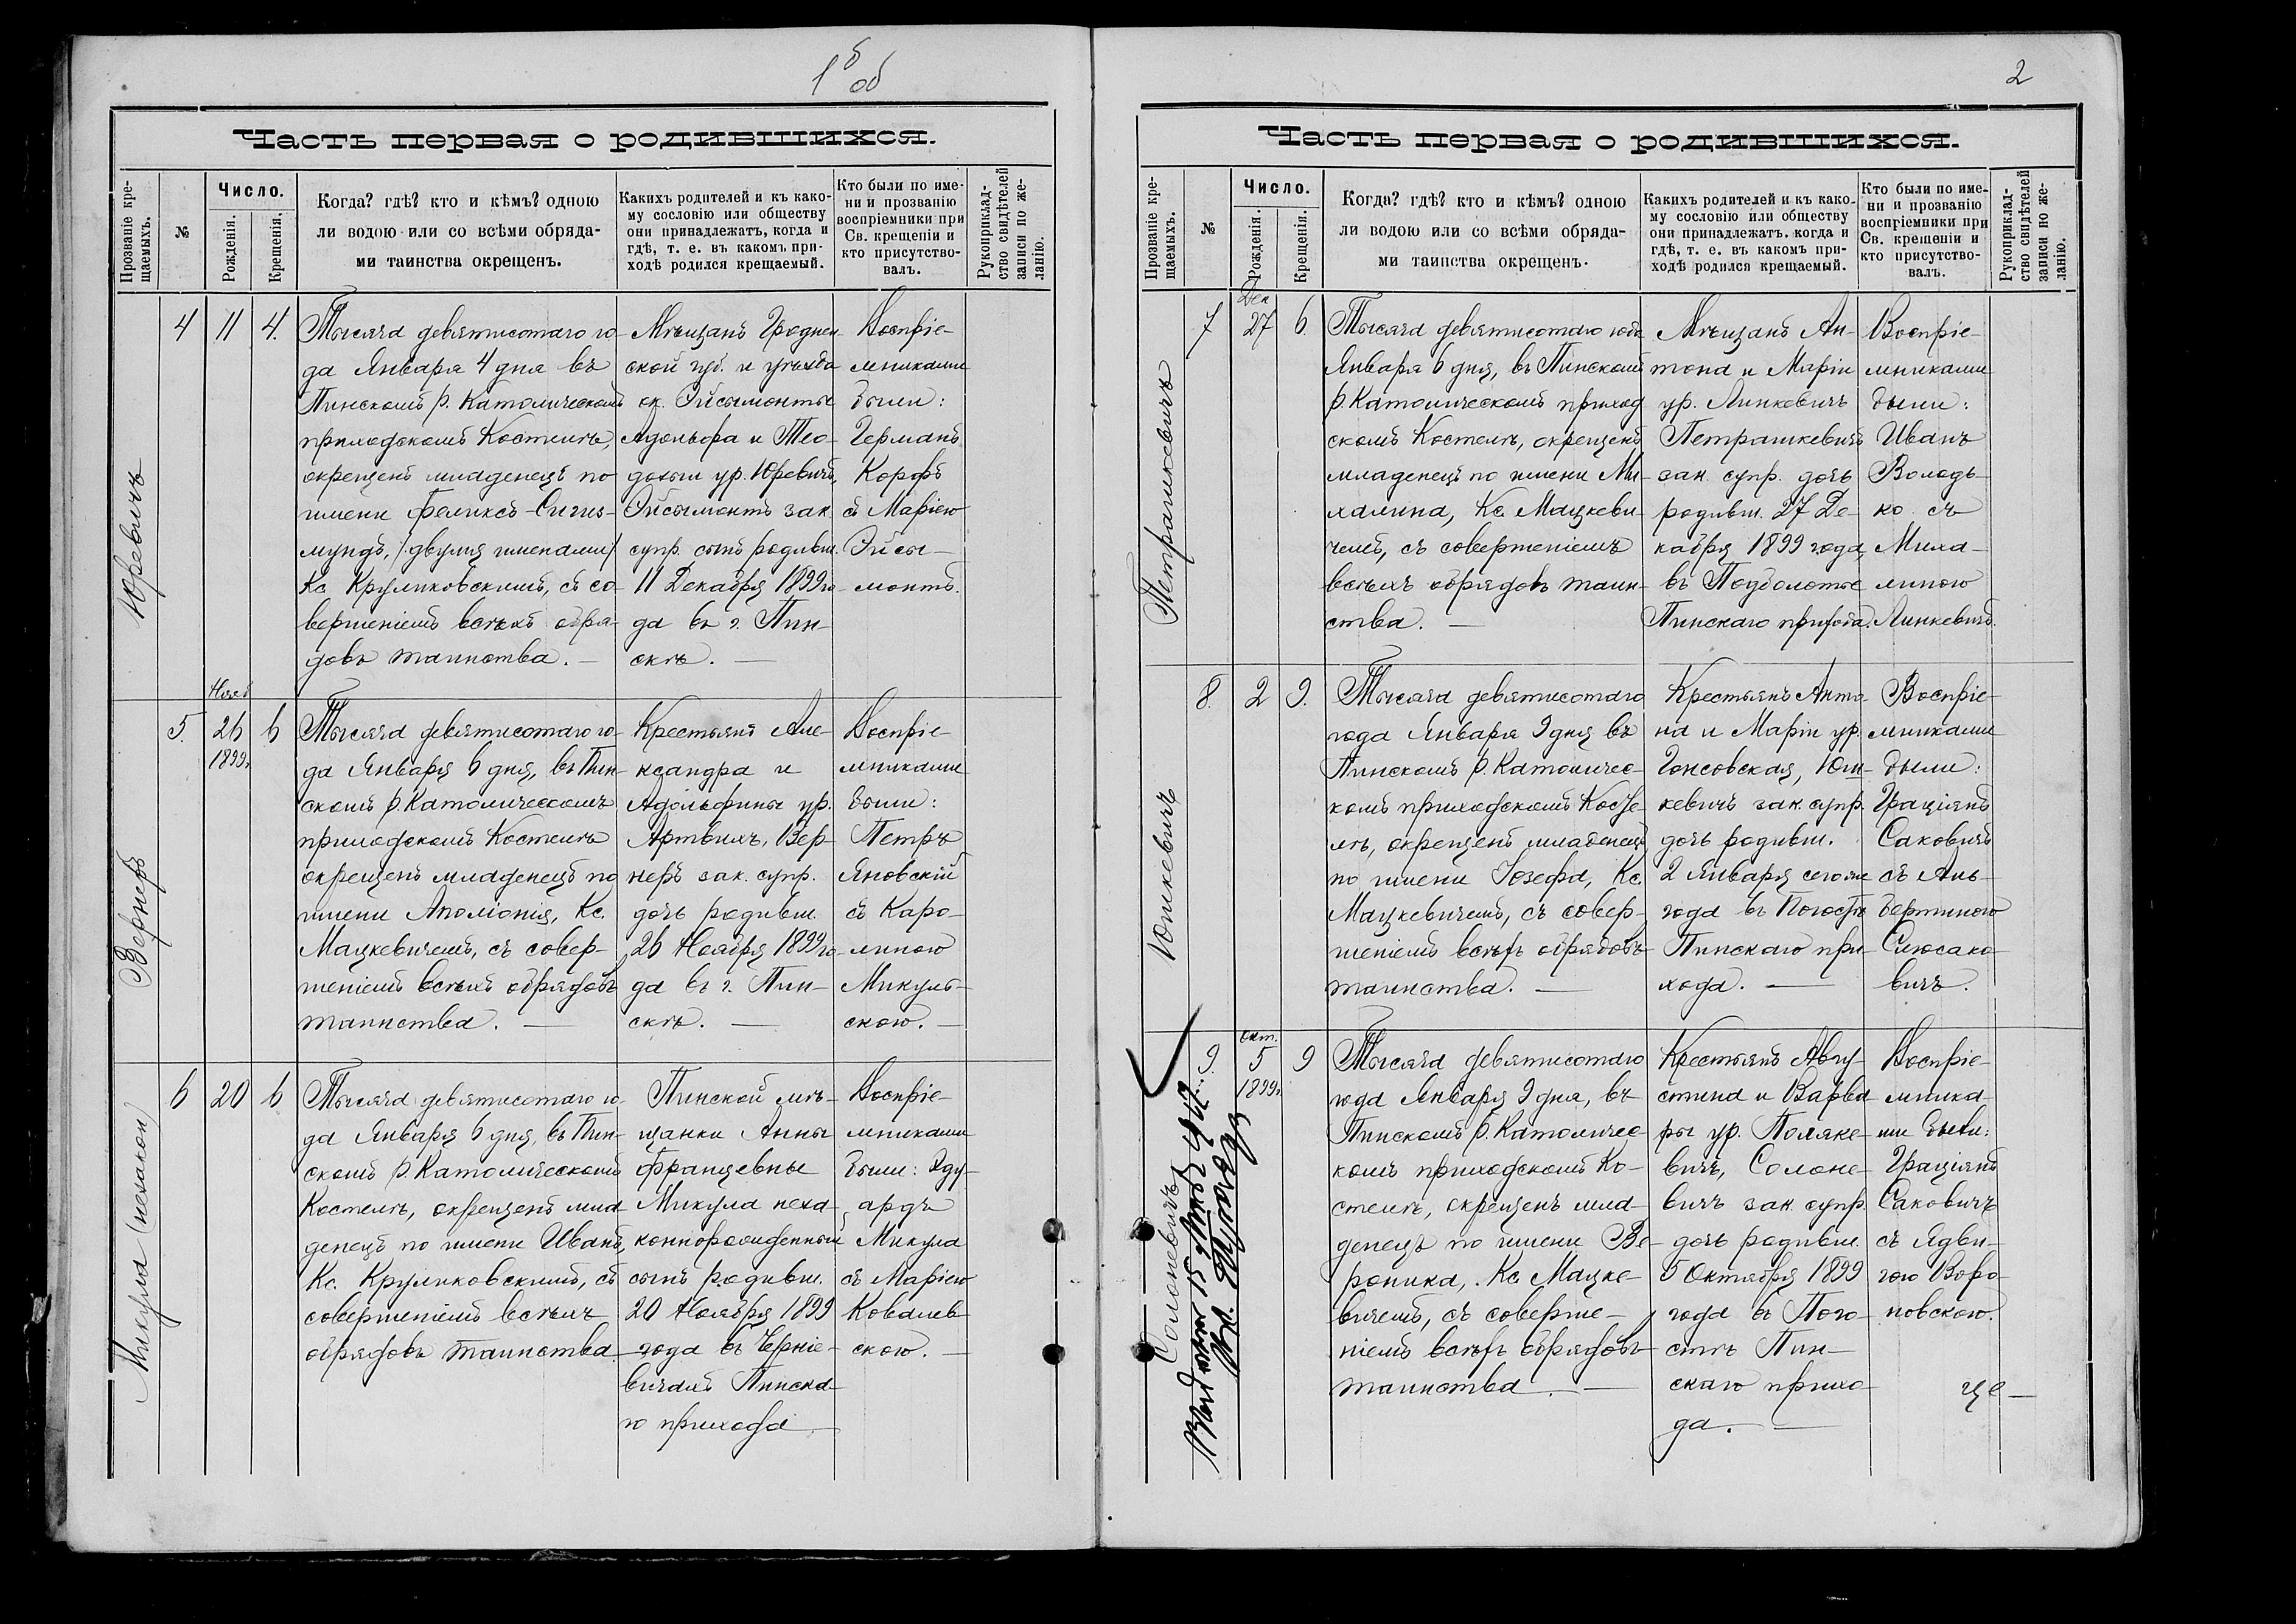 1б об
Часть первая о родившихся.
Прозваніе кре-
щаемыхъ.
№
Число.
Рожденія.
Крещенія.
Когда? гдѣ? кто и кѣмъ? одною
ли водою или со всѣми обряда-
ми таинства окрещен.
Какихъ родителей и къ како-
му сословію или обществу
они принадлежатъ, когда и
гдѣ, т. е. въ какомъ при-
ходѣ родился крещаемый.
Кто были по име-
ни и прозванію
воспріемники при
Св. крещеніи и
кто присутство-
валъ.
Рукоприклад-
ство свидѣтелей
записи по же-
ланію.
Юревичъ
4
11
4.
Тысяча девятисотаго го-
да Января 4 дня въ
Пинскомъ р. Католическомъ
приходскомъ Костелѣ,
окрещенъ младенецъ по
имени Феликсъ-Сигиз-
мундъ, /двумя именами/
Кс. Круликовскимъ, съ со-
вершеніемъ всѣхъ обря-
довъ таинства. —
Мѣщанъ Гроднен-
ской губ. и уѣзда
ок. Эйсымонты
Адольфа и Тео-
дозіи ур. Юревичъ,
Эйсымонтъ зак.
супр. сынъ родивш.
11 Декабря 1899 го-
да въ г. Пин-
скѣ. —
Воспріе-
мниками
были:
Германъ
Корфъ
съ Маріею
Эйсы-
монтъ.
Вернеръ
5.
Нояб
26
1899г.
6
Тысяча девятисотаго го-
да Января 6 дня, въ Пин-
скомъ р. Католическомъ
приходскомъ Костелѣ
окрещенъ младенецъ по
имени Аполіонія, Кс.
Мацкевичемъ, съ совер-
шеніемъ всѣхъ обрядовъ
таинства. —
Крестьянъ Але-
ксандра и
Адольфины ур.
Артвихъ, Вер-
неръ зак. супр.
дочь родивш.
26 Ноября 1899 го-
да въ г. Пин-
скѣ. —
Воспріе-
мниками
были:
Петръ
Яновскій
съ Каро-
линою
Микуль-
скою. —
Микула (незакон)
6
20
6
Тысяча девятисотаго го-
да Января 6 дня, въ Пин-
скомъ р. Католическомъ
Костелѣ, окрещенъ мла-
денецъ по имени Иванъ,
Кс. Круликовскимъ, съ
совершеніемъ всѣхъ
обрядовъ таинства.
Пинской мѣ-
щанки Анны
Францевны
Микула неза-
коннорожденный
сынъ родивш.
20 Ноября 1899
года въ Черніе-
вичахъ Пинска-
го прихода —
Воспріе-
мниками
были: Эду-
ардъ
Микула
съ Маріею
Ковалев-
скою. —
2
Часть первая о родившихся.
Прозваніе кре-
щаемыхъ.
№
Число.
Рожденія.
Крещенія.
Когда? гдѣ? кто и кѣмъ? одною
ли водою или со всѣми обряда-
ми таинства окрещенъ.
Какихъ родителей и къ како-
му сословію или обществу
они принадлежатъ. когда и
гдѣ, т. е. въ какомъ при-
ходѣ родился крещаемый.
Кто были по име-
ни и прозванію
воспріемники при
Св. крещеніи и
кто присутство-
валъ.
Рукоприклад-
ство свидѣтелей
записи по же-
ланію.
Петрашкевичъ
7
Дек
27
6.
Тысяча девятисотаго года
Января 6 дня, въ Пинскомъ
р. Католическомъ приход-
скомъ Костелѣ, окрещенъ
младенецъ по имени Ми-
халина, Кс. Мацкеви-
чемъ, съ совершеніемъ
всѣхъ обрядовъ таин-
ства. —
Мѣщанъ Ан-
тона и Маріи
ур. Линкевичъ
Петрашкевичъ
зак. супр. дочь
родивш. 27 Де-
кабря 1899 года,
въ Подболотье
Пинскаго прихода.
Воспріе-
мниками
были:
Иванъ
Володь-
ко съ
Миха-
линою
Линкевичъ.
Юшкевичъ
8.
2
9.
Тысяча девятисотаго
года Января 9 дня въ
Пинскомъ р. Католичес-
комъ приходскомъ Косте-
лѣ, окрещенъ младенецъ
по имени Іозефа, Кс.
Мацкевичемъ, съ совер-
шеніемъ всѣхъ обрядовъ
таинства. —
Крестьянъ Анто-
на и Маріи ур.
Гонсовская, Юш-
кевичъ зак. супр.
дочь родивш.
2 Января сего же
года въ Погостѣ
Пинскаго при-
хода. —
Воспріе-
мниками
были:
Граціянъ
Саковичъ
съ Аль-
бертиною
Слюсако-
вичъ.
Солоневичъ
9.
Окт.
5
1899г.
9
Тысяча девятисотаго
года Января 9 дня, въ
Пинскомъ р. Католичес-
комъ приходскомъ Ко-
стелѣ, окрещенъ мла-
денецъ по имени Ве-
роника, Кс. Мацке-
вичемъ, съ соверше-
ніемъ всѣхъ обрядовъ
таинства. —
Крестьянъ Авгу-
стина и Варва-
ры ур. Поляке-
вичъ, Солоне-
вичъ зак. супр.
дочь родивш.
5 Октября 1899
года въ Пого-
стѣ Пин-
скаго прихо-
да. —
Воспріе-
мника-
ми были:
Граціянъ
Саковичъ
съ Ядви-
гою Воро-
новскою.